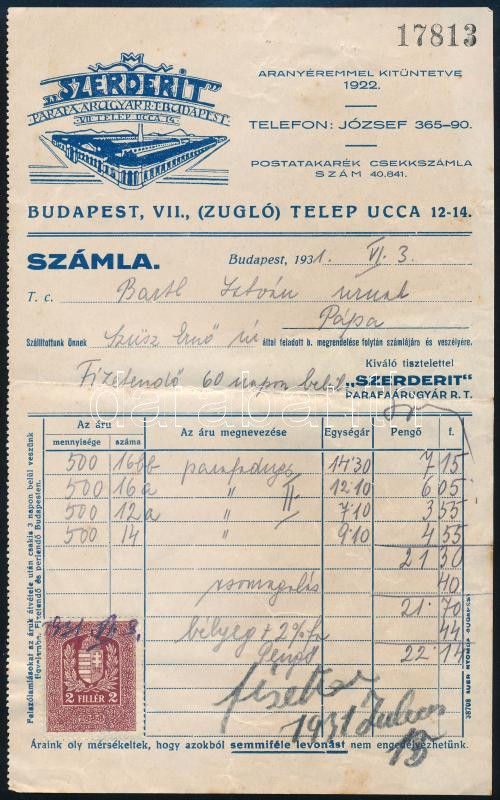 17813
„SZERDERIT"
PARAFAÁRUGYÁR R.T. BUDAPEST.
VII. TELEP UCCA 14.
ARANYÉREMMEL KITÜNTETVE
1922.
TELEFON: JÓZSEF 365-90.
POSTATAKARÉK CSEKKSZÁMLA
SZÁM 40.841.
BUDAPEST, VII., (ZUGLÓ) TELEP UCCA 12-14.
SZÁMLA.
Budapest, 1931. VI. 3.
T. c. Bartl István urnak
Pápa
Szállítottunk Önnek Szüsz Ernő úr által feladott b. megrendelése folytán számlájára és veszélyére.
Kiváló tisztelettel
Fizetendő 60 napon belül „SZERDERIT"
PARAFAÁRUGYÁR R. T.
Az áru mennyisége száma Az áru megnevezése Egységár Pengő f.
500 16bb parafadugó 14·30 7 15
500 16a " II 12·10 6 05
500 12a " 7·10 3 55
500 14 " 9·10 4 55
21 30
csomagolás 40
21·70
bélyeg + 2% fa 44
Pengő 22·14
1931 VI. 3.
2 FILLÉR 2
fizetve
1931 Julius
13
Felszólamlásokat az áruk átvétele után csakis 3 napon belül veszünk
figyelembe. Fizetendő és perlendő Budapesten.
Áraink oly mérsékeltek, hogy azokból semmiféle levonást nem engedélyezhetünk.